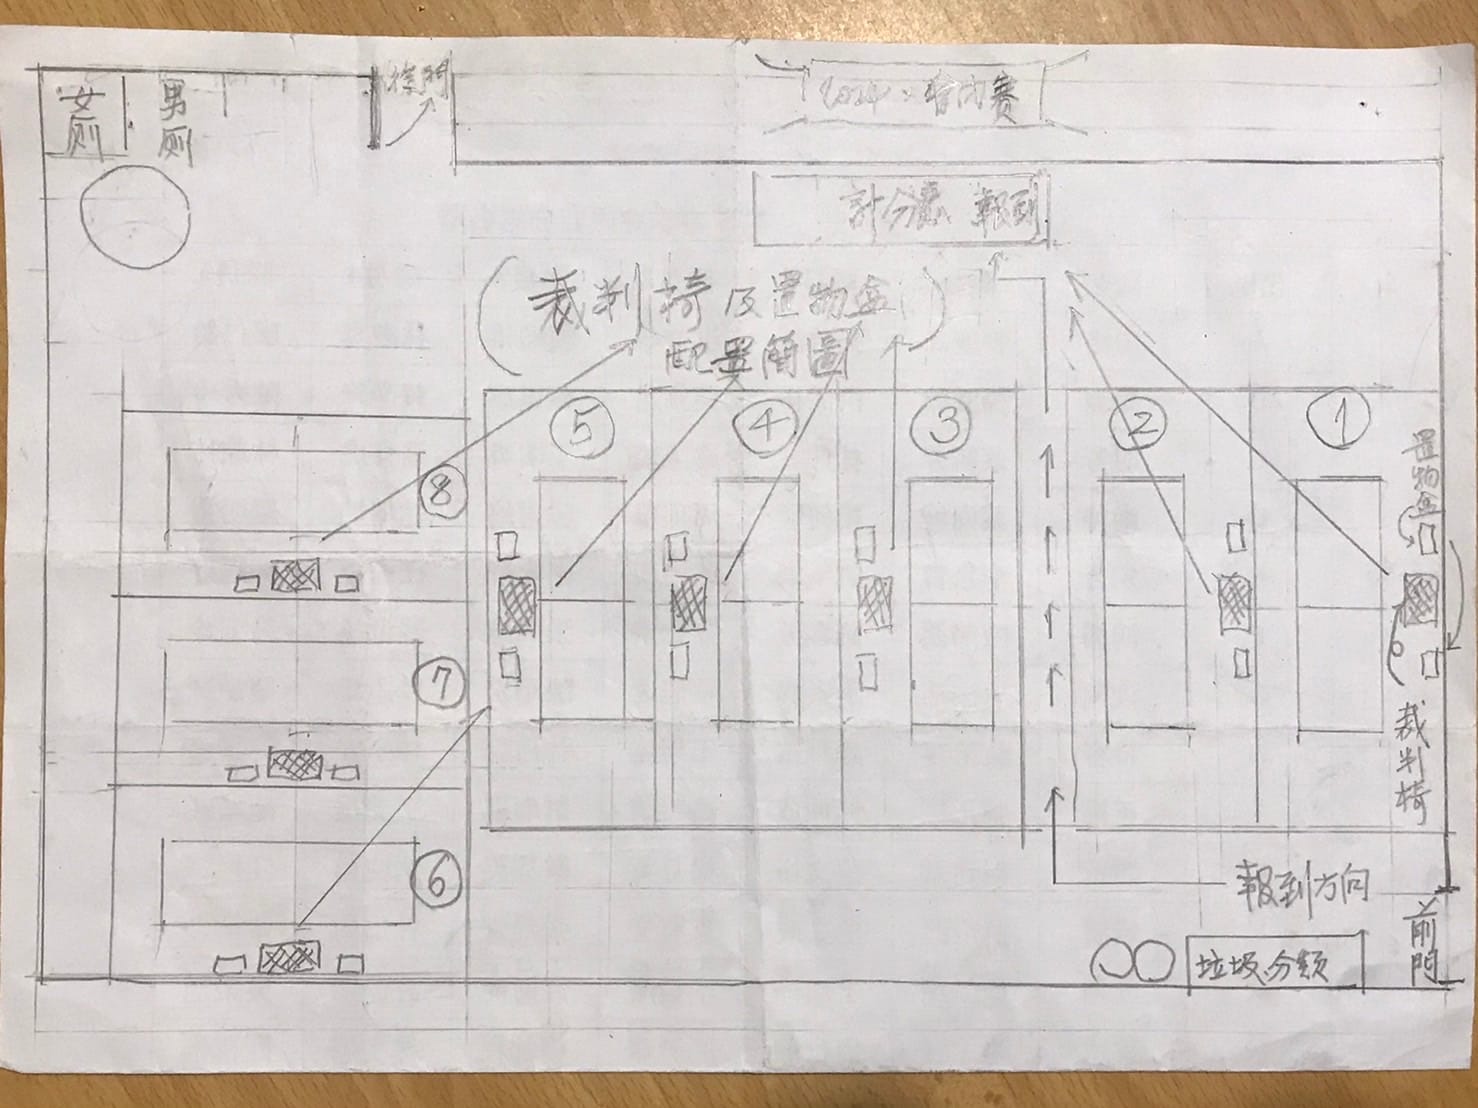 女厠
男厠
後門
2024.會內賽
計分處 報到
(裁判椅及置物盒
配置簡圖)
⑤
④
③
②
①
置物盒
⑧
⑦
裁判椅
⑥
報到方向
前門
垃圾分類